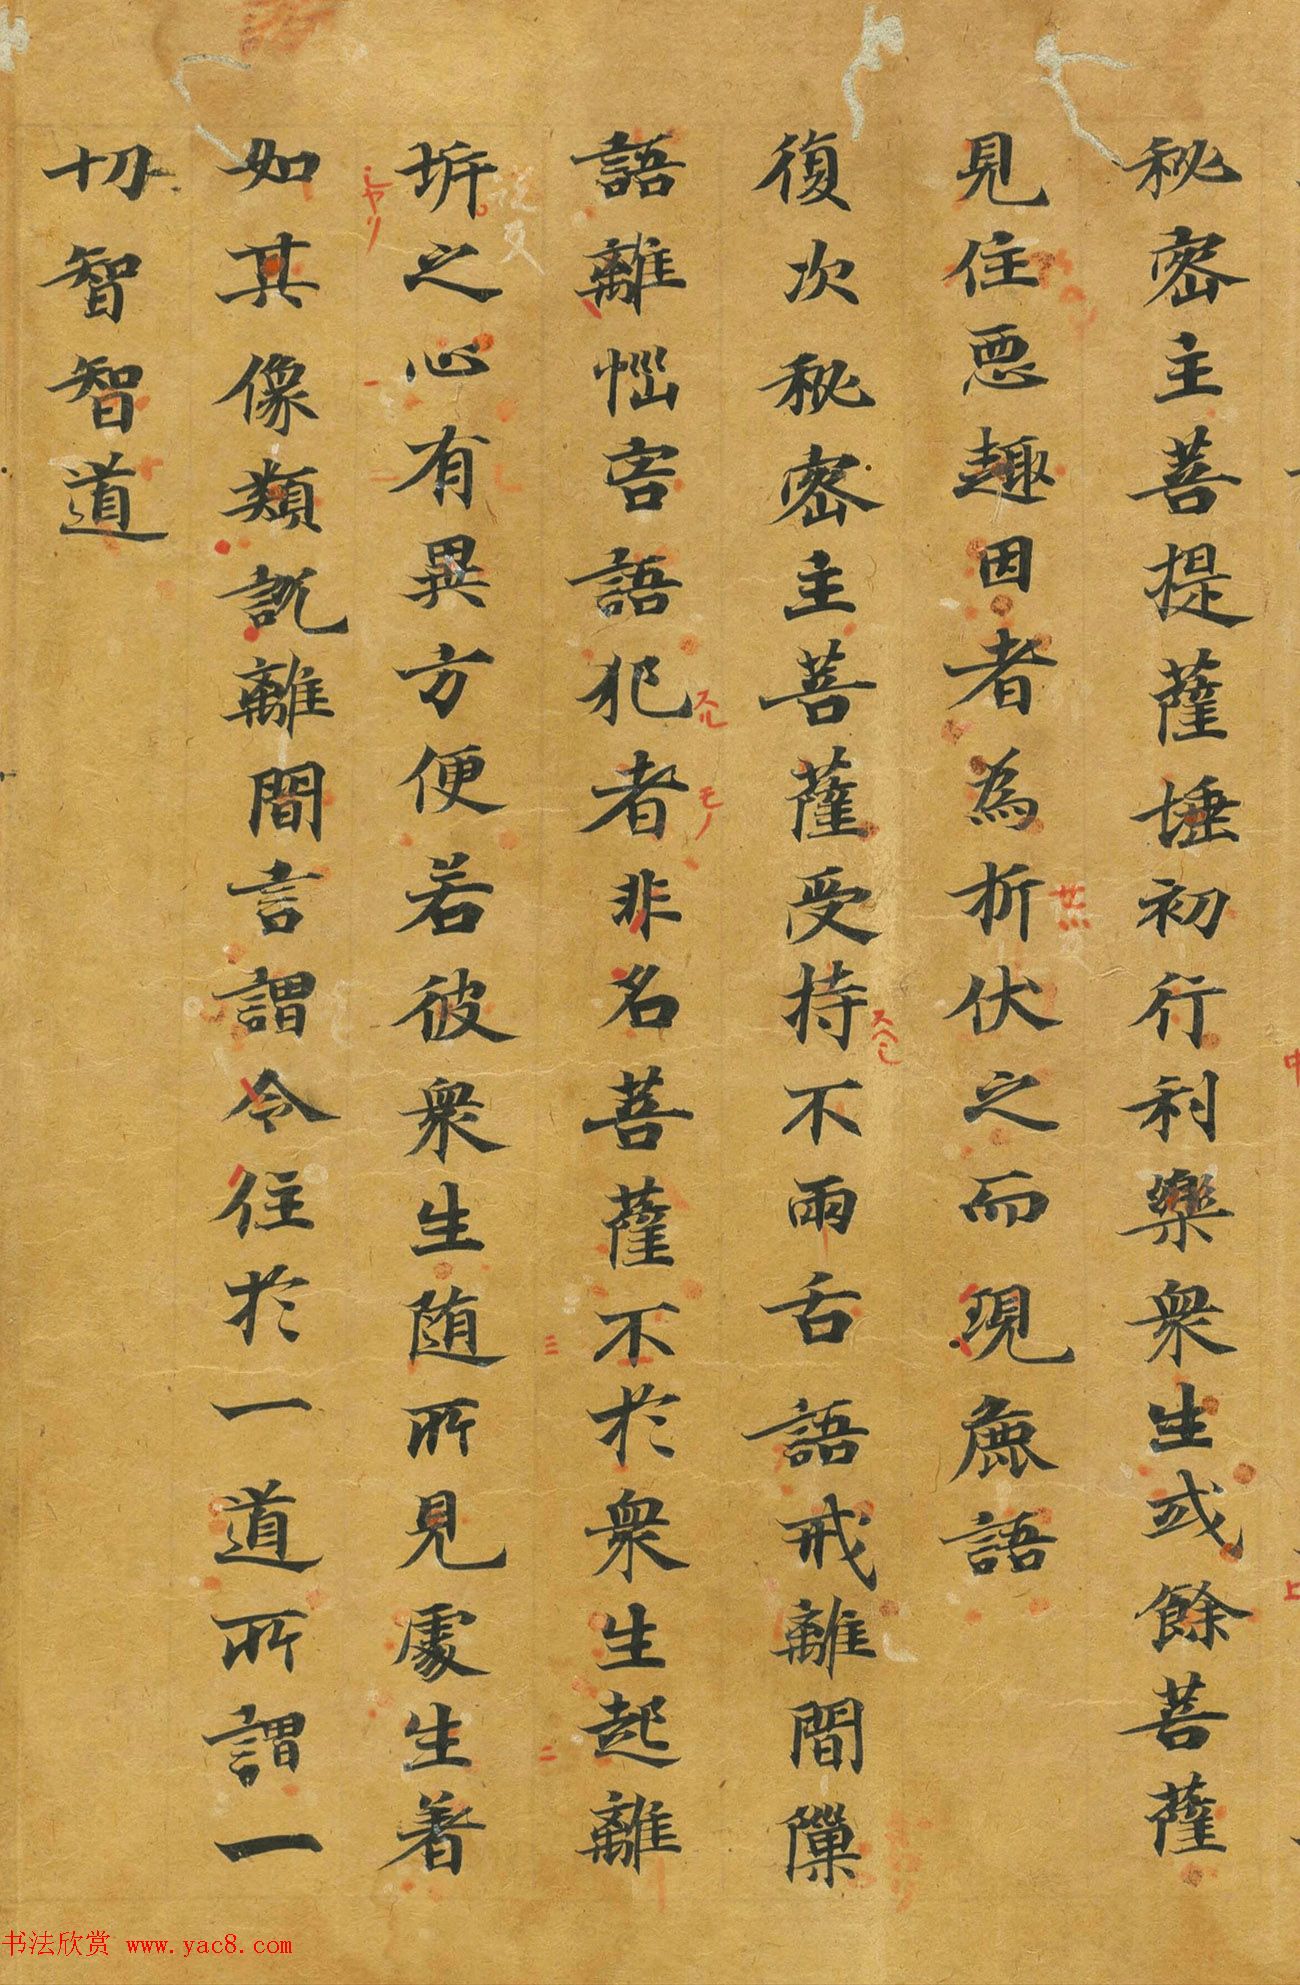 秘密主菩提薩埵初行利樂衆生或餘菩薩
見住惡趣因者為折伏之而現麁語
復次秘密主菩薩受持不兩舌語戒離間隟
語離惱害語犯者非名菩薩不於衆生起離
坼之心有異方便若彼衆生随所見處生著
如其像類說離間言謂令住於一道所謂一
切智智道
スル
モノ
书法欣赏 www.yac8.com